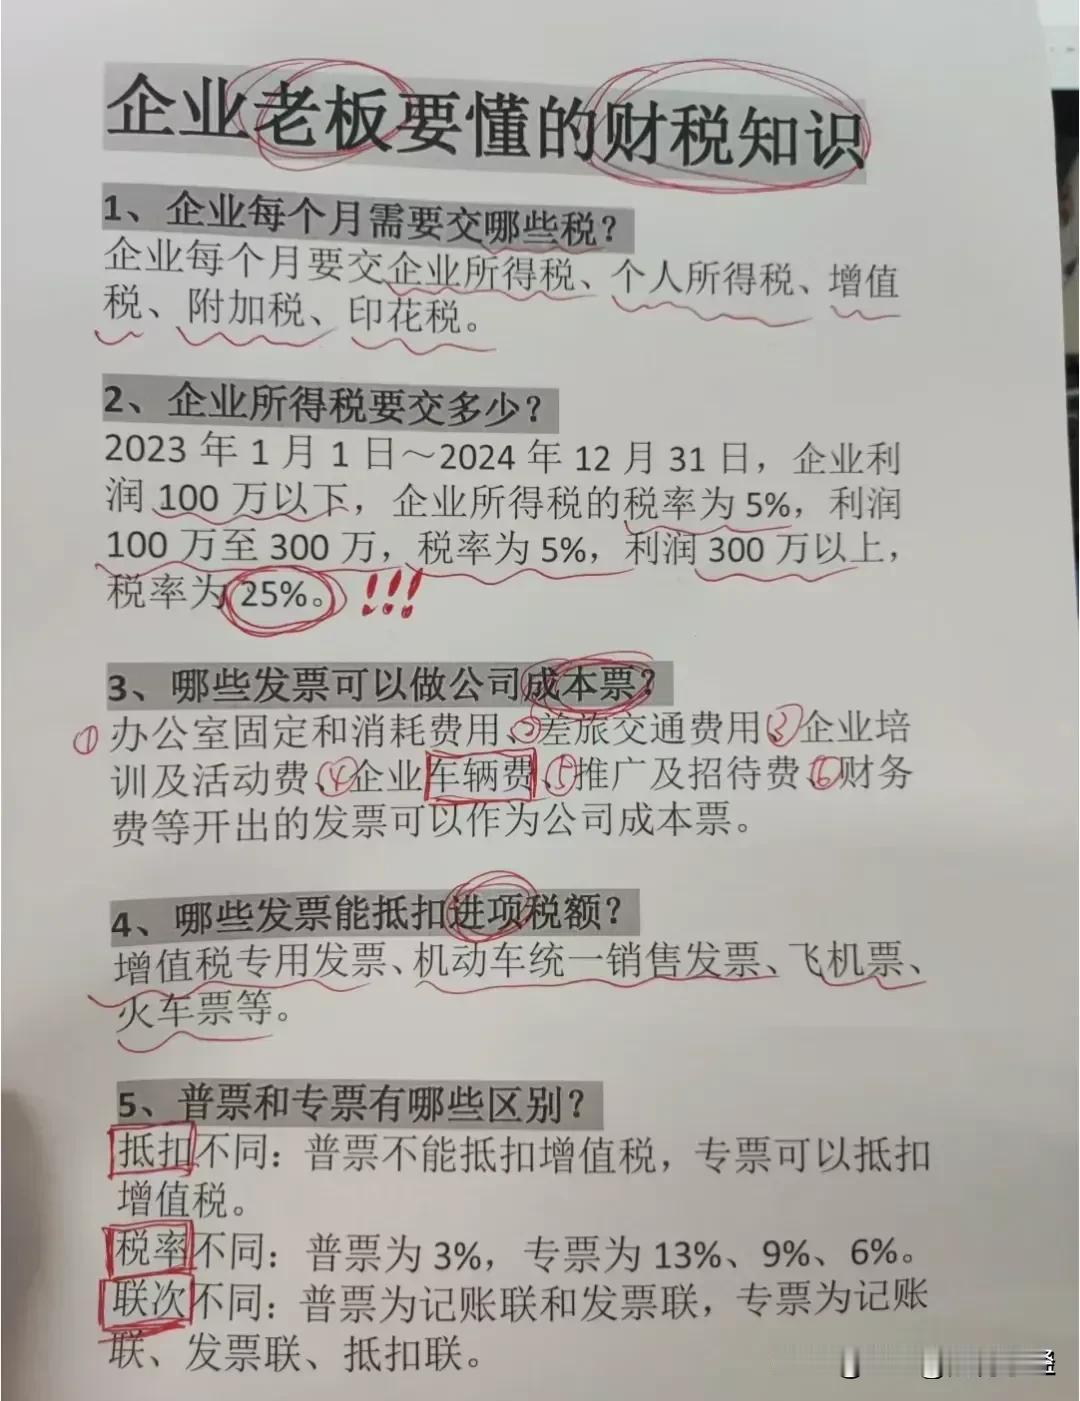 企业老板要懂的财税知识
1、企业每个月需要交哪些税？
企业每个月要交企业所得税、个人所得税、增值
税、附加税、印花税。
2、企业所得税要交多少？
2023 年 1 月 1 日～2024 年 12 月 31 日，企业利
润 100 万以下，企业所得税的税率为 5%，利润
100 万至 300 万，税率为 5%，利润 300 万以上，
税率为 25%。!!!
3、哪些发票可以做公司成本票？
①办公室固定和消耗费用、②差旅交通费用③企业培
训及活动费、④企业车辆费、⑤推广及招待费、⑥财务
费等开出的发票可以作为公司成本票。
4、哪些发票能抵扣进项税额？
增值税专用发票、机动车统一销售发票、飞机票、
火车票等。
5、普票和专票有哪些区别？
抵扣不同：普票不能抵扣增值税，专票可以抵扣
增值税。
税率不同：普票为 3%，专票为 13%、9%、6%。
联次不同：普票为记账联和发票联，专票为记账
联、发票联、抵扣联。